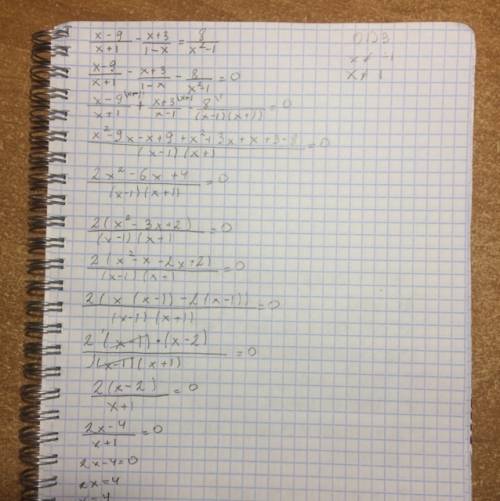 x-9/x+1 - x+3/1-x = 8/x²-1
ОДЗ
x ≠ -1
x ≠ 1
x-9/x+1 - x+3/1-x - 8/x²-1 = 0
x-9/x+1 + x+3/x-1 - 8/(x-1)(x+1) = 0
x²-9x-x+9+x²+3x+x+3-8/(x-1)(x+1 = 0
2x²-6x+4/(x-1)(x+1) = 0
2(x²-3x+2)/(x-1)(x+1) = 0
2(x²-x-2x+2)/(x-1)(x+1) = 0
2(x(x-1)-2(x-1))/(x-1)(x+1) = 0
2(x-1)·(x-2)/(x-1)(x+1) = 0
2(x-2)/x+1 = 0
2x-4/x+1 = 0
2x-4=0
2x=4